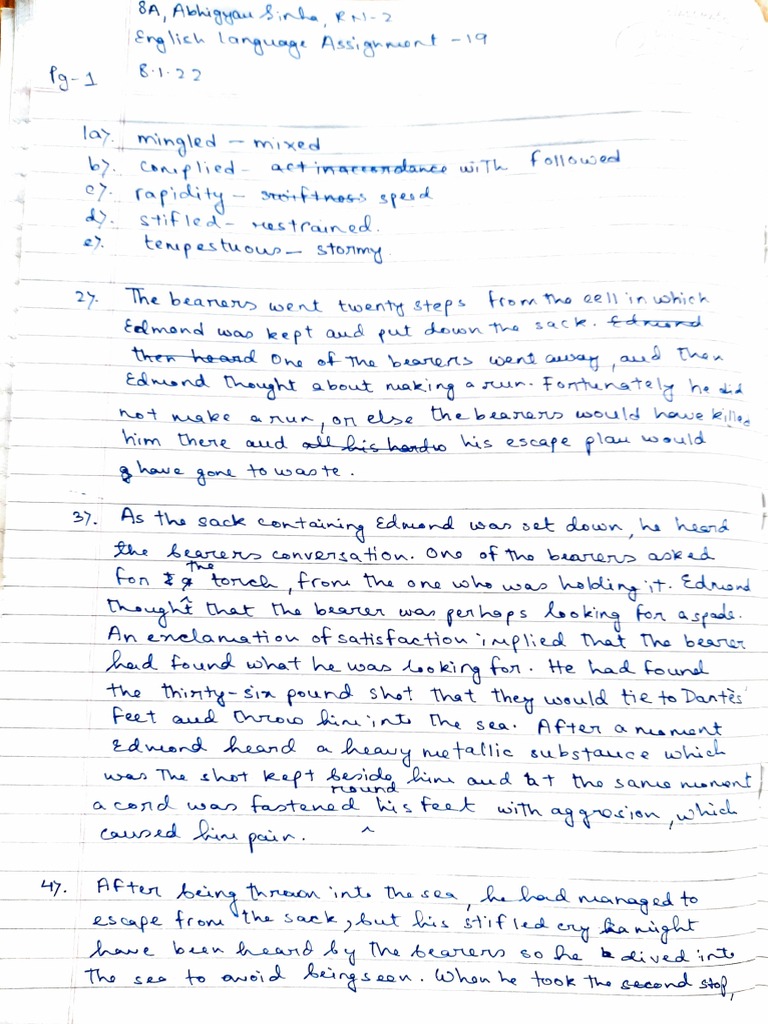 8A, Abhigyan Sinha, RN-2
English Language Assignment -19
Pg-1 8.1.22
1a). mingled - mixed
b). complied - act inaccordance with followed
c). rapidity - swiftness speed
d). stifled - restrained.
e). tempestuous - stormy.
2). The bearers went twenty steps from the cell in which
Edmond was kept and put down the sack. Edmond
then heard One of the bearers went away, and then
Edmond thought about making a run. Fortunately he did
not make a run, or else the bearers would have killed
him there and all his hardw his escape plan would
have gone to waste.
3). As the sack containing Edmond was set down, he heard
the bearers conversation. One of the bearers asked
for the torch, from the one who was holding it. Edmond
thought that the bearer was perhaps looking for a spade.
An exclamation of satisfaction implied that the bearer
had found what he was looking for. He had found
the thirty-six pound shot that they would tie to Dantès'
feet and throw him into the sea. After a moment
Edmond heard a heavy metallic substance which
was the shot kept beside him and at the same moment
a cord was fastened round his feet with aggrosion, which
caused him pain.
4). After being thrown into the sea, he had managed to
escape from the sack, but his stifled cry might
have been heard by the bearers so he dived into
the sea to avoid being seen. When he took the second stop,